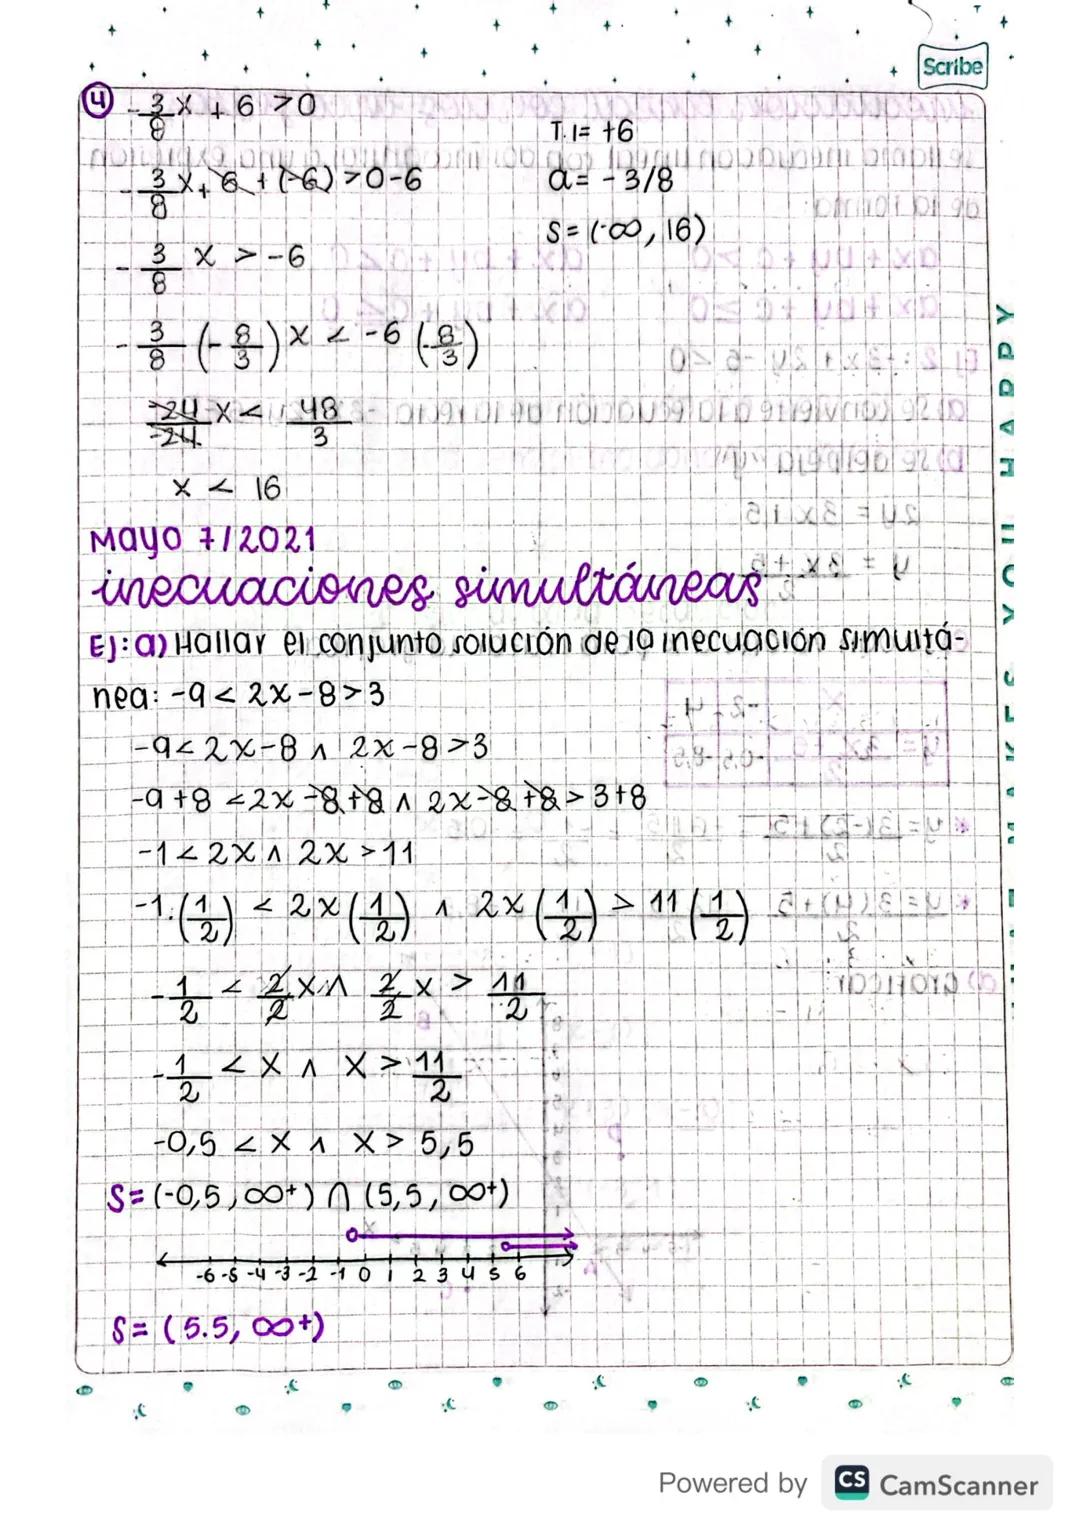 Scribe
④ -3/8 x + 6 > 0
T.I= +6
-3/8 x + 6 + (-6) > 0-6
a= -3/8
S= (-∞, 16)
-3/8 x > -6
-3/8 (-8/3) x < -6 (-8/3)
-24/-24 x < 48/3
x < 16
Mayo 7/2021
inecuaciones simultáneas
Ej: a) Hallar el conjunto solución de la inecuación simultá-
nea: -9 < 2x-8 > 3
-9 < 2x-8 ∧ 2x-8 > 3
-9+8 < 2x-8+8 ∧ 2x-8+8 > 3+8
-1 < 2x ∧ 2x > 11
-1.(1/2) < 2x(1/2) ∧ 2x(1/2) > 11(1/2)
-1/2 < 2/2 x ∧ 2/2 x > 11/2
-1/2 < x ∧ x > 11/2
-0,5 < x ∧ x > 5,5
S= (-0,5, ∞+) ∩ (5,5, ∞+)
-6 -5 -4 -3 -2 -1 0 1 2 3 4 5 6
S= (5.5, ∞+)
Powered by CS CamScanner